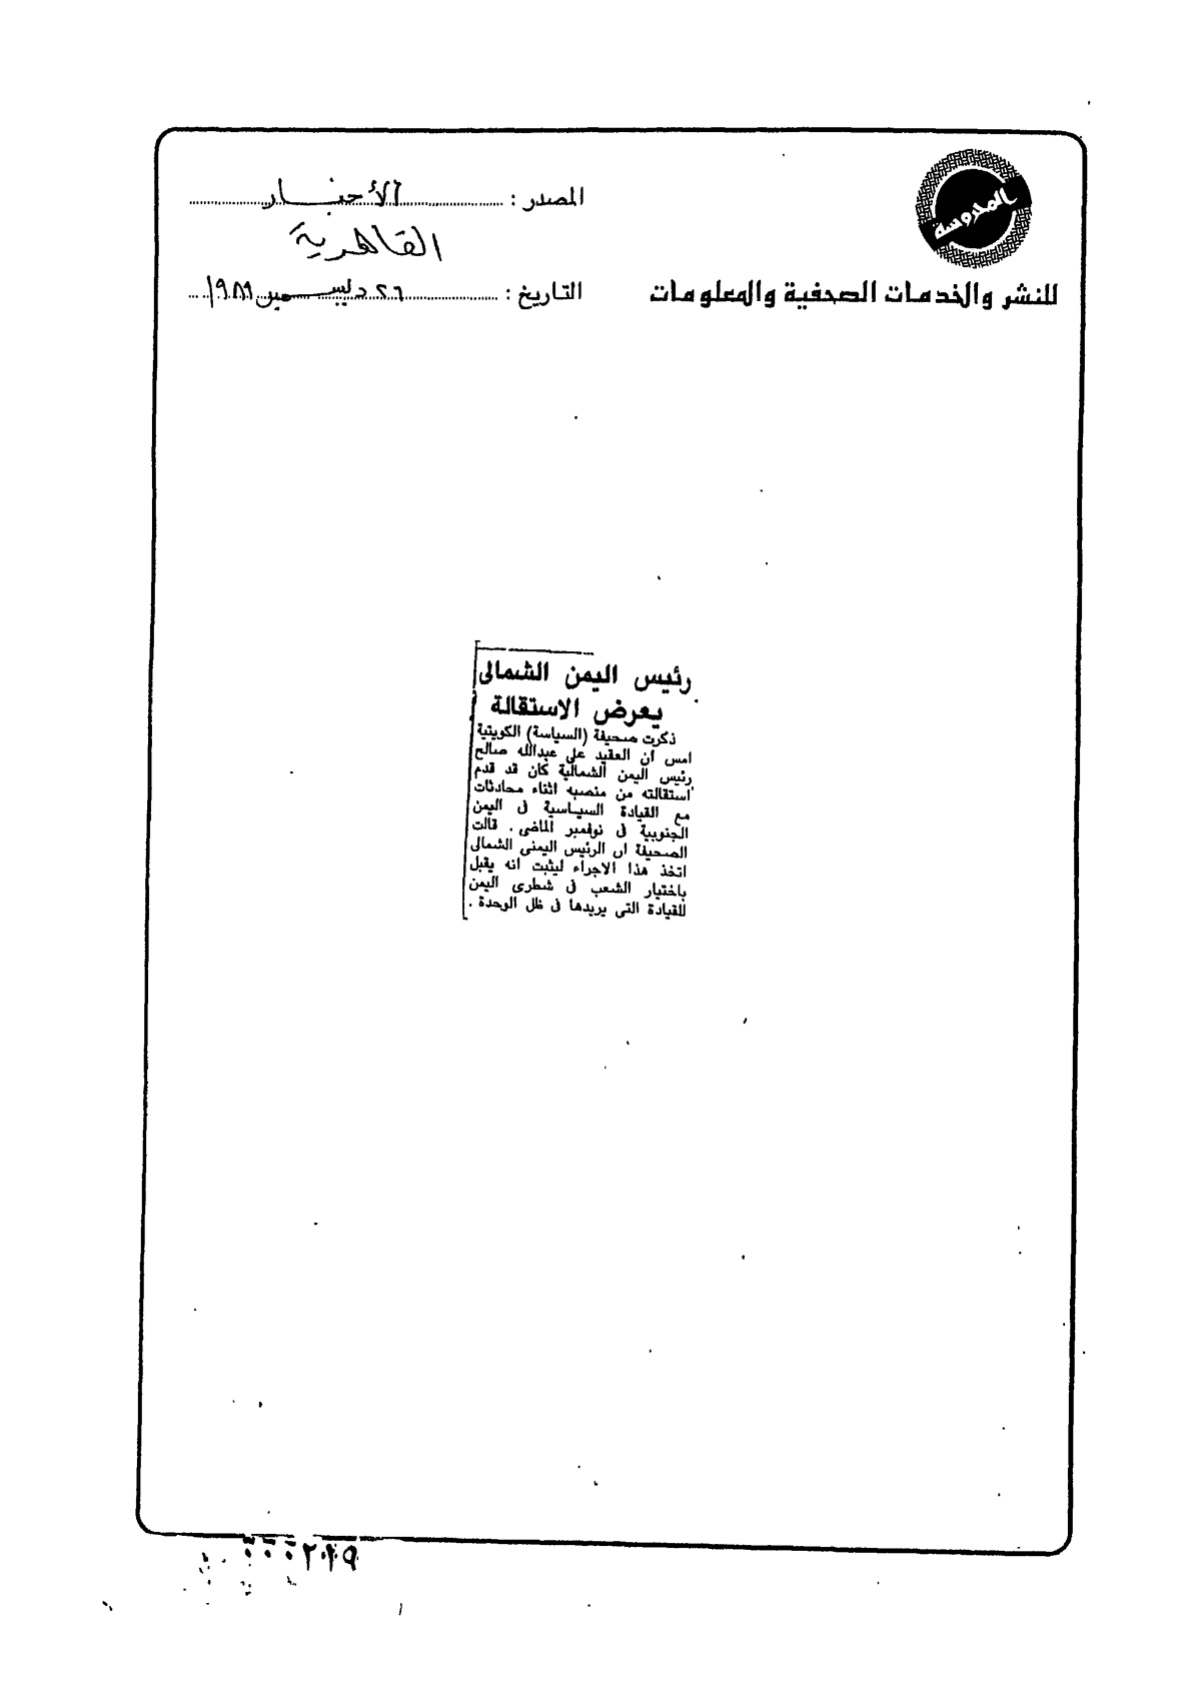 المحروسة
للنشر والخدمات الصحفية والمعلومات
المصدر : الأخبار
القاهرية
التاريخ : ٢٦ ديسمبر ١٩٨٩
رئيس اليمن الشمالى
يعرض الاستقالة
ذكرت صحيفة (السياسة) الكويتية
امس ان العقيد على عبدالله صالح
رئيس اليمن الشمالية كان قد قدم
استقالته من منصبه اثناء محادثات
مع القيادة السياسية فى اليمن
الجنوبية فى نوفمبر الماضى . قالت
الصحيفة ان الرئيس اليمنى الشمالى
اتخذ هذا الاجراء ليثبت انه يقبل
باختيار الشعب فى شطرى اليمن
للقيادة التى يريدها فى ظل الوحدة .